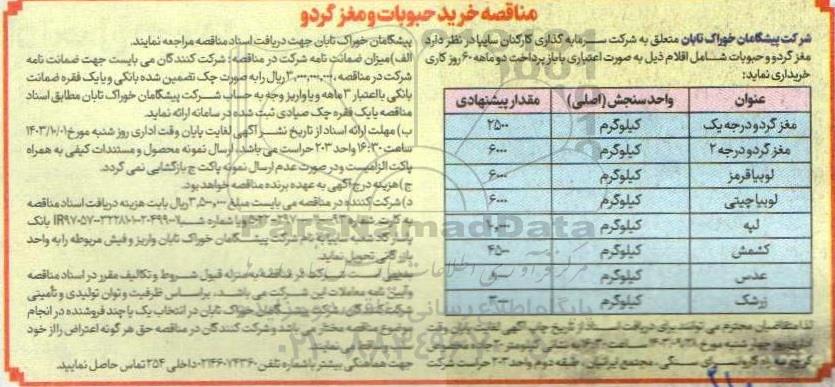 مناقصه خرید حبوبات و مغز گردو
شرکت پیشگامان خوراک تابان متعلق به شرکت سرمایه گذاری کارکنان سایپا در نظر دارد
مغز گردو و حبوبات شامل اقلام ذیل به صورت اعتباری با باز پرداخت دو ماهه ۶۰ روز کاری
خریداری نماید:
عنوان واحد سنجش (اصلی) مقدار پیشنهادی
مغز گردو درجه یک کیلوگرم ۲۵۰۰
مغز گردو درجه ۲ کیلوگرم ۶۰۰۰
لوبیا قرمز کیلوگرم ۶۰۰۰
لوبیا چیتی کیلوگرم ۶۰۰۰
لپه کیلوگرم
کشمش کیلوگرم ۴۵۰۰
عدس کیلوگرم
زرشک کیلوگرم ۳۰۰۰
لذا متقاضیان محترم می توانند برای دریافت اسناد از تاریخ چاپ آگهی لغایت پایان وقت
اداری روز چهار شنبه مورخ ۱۴۰۳/۰۹/۲۸ ساعت ۱۶:۳۰ به نشانی کیلومتر ۲۰ جاده مخصوص
کرج سنگی، مجتمع ایرانیان، طبقه دوم واحد ۲۰۳ حراست شرکت
پیشگامان خوراک تابان جهت دریافت اسناد مناقصه مراجعه نمایند.
الف) میزان ضمانت نامه شرکت در مناقصه: شرکت کنندگان می بایست جهت ضمانت نامه
شرکت در مناقصه، ۳,۰۰۰,۰۰۰,۰۰۰ ریال را به صورت چک تضمین شده بانکی و یا یک فقره ضمانت
بانکی با اعتبار ۳ ماهه و یا واریز وجه به حساب شرکت پیشگامان خوراک تابان مطابق اسناد
مناقصه یا یک فقره چک صیادی ثبت شده در سامانه ارائه نماید.
ب) مهلت ارائه اسناد از تاریخ نشر آگهی لغایت پایان وقت اداری روز شنبه مورخ ۱۴۰۳/۱۰/۰۱
ساعت ۱۶:۳۰ واحد ۲۰۳ حراست می باشد. ارسال نمونه محصول و مستندات کیفی به همراه
پاکت الزامیست و در صورت عدم ارسال نمونه پاکت ج بازگشایی نمی گردد.
ج) هزینه درج آگهی به عهده برنده مناقصه خواهد بود.
د) شرکت کننده در مناقصه می بایست مبلغ ریال بابت هزینه دریافت اسناد مناقصه
به کارت شماره و یا شماره شبا بانک
پاسارگاد شعبه سایپا به نام شرکت پیشگامان خوراک تابان واریز و فیش مربوطه را به واحد
بازرگانی تحویل نماید.
شرکت در مناقصه به منزله قبول شروط و تکالیف مقرر در اسناد مناقصه
و آیین نامه معاملات این شرکت می باشد. براساس ظرفیت و توان تولیدی و تأمینی
شرکت کنندگان، شرکت پیشگامان خوراک تابان در انتخاب یک یا چند فروشنده در انجام
موضوع مناقصه مختار می باشد و شرکت کنندگان در مناقصه حق هر گونه اعتراض را از خود
ساقط می نمایند.
جهت هماهنگی بیشتر با شماره تلفن ۰۲۱۴۶۰۷۴۳۶۰ داخلی ۲۵۴ تماس حاصل نمایید.
ParsNamadData